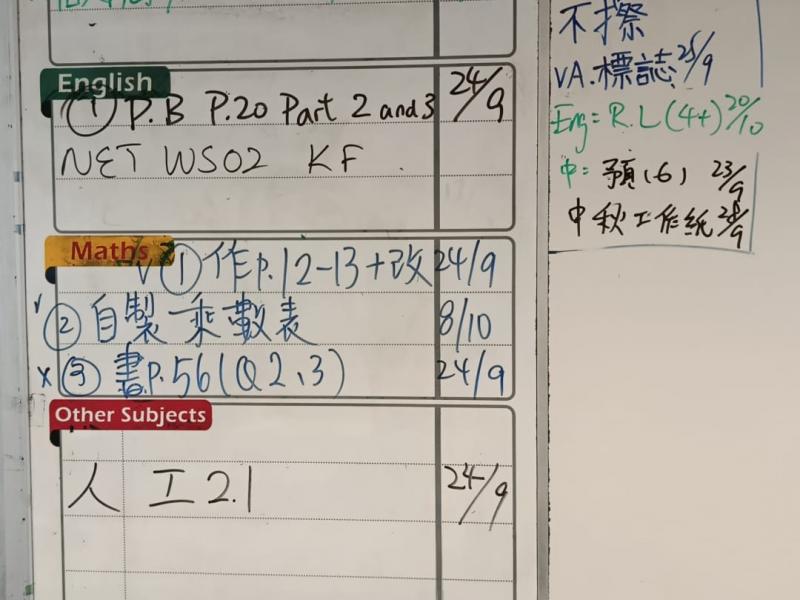 English
① P.B P.20 Part 2 and 3 24/9
NET WS02 KF
Maths
√ ① 作p.12-13+改 24/9
√ ② 自製乘數表 8/10
x ③ 書p.56(Q2、3) 24/9
Other Subjects
人 工2.1 24/9
不擦
VA.標誌 25/9
Eng= R.L(4+) 20/10
中: 預(6) 23/9
中秋工作紙 28/9